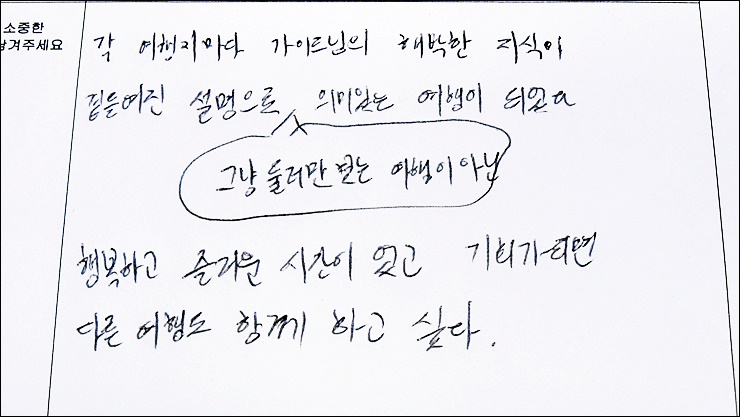 소중한
남겨주세요
각 여행지마다 가이드님의 해박한 지식이
깃들여진 설명으로 의미있는 여행이 되었다
그냥 둘러만 보는 여행이 아닌
행복하고 즐거운 시간이 였고 기회가되면
다른 여행도 함께 하고 싶다.